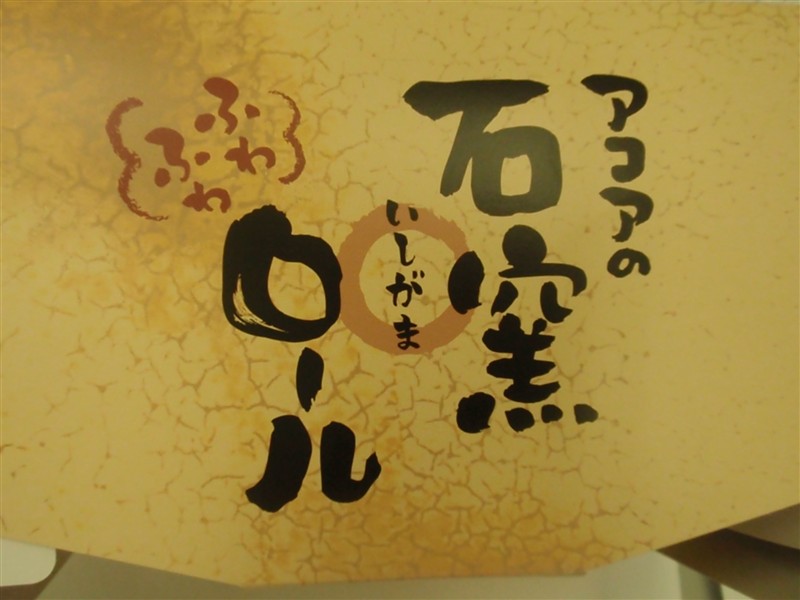 アコアの
石窯
いしがま
ロール
ふわ
ふわ